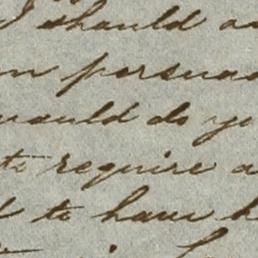 I should
persuad
would do yo
require a
to have h